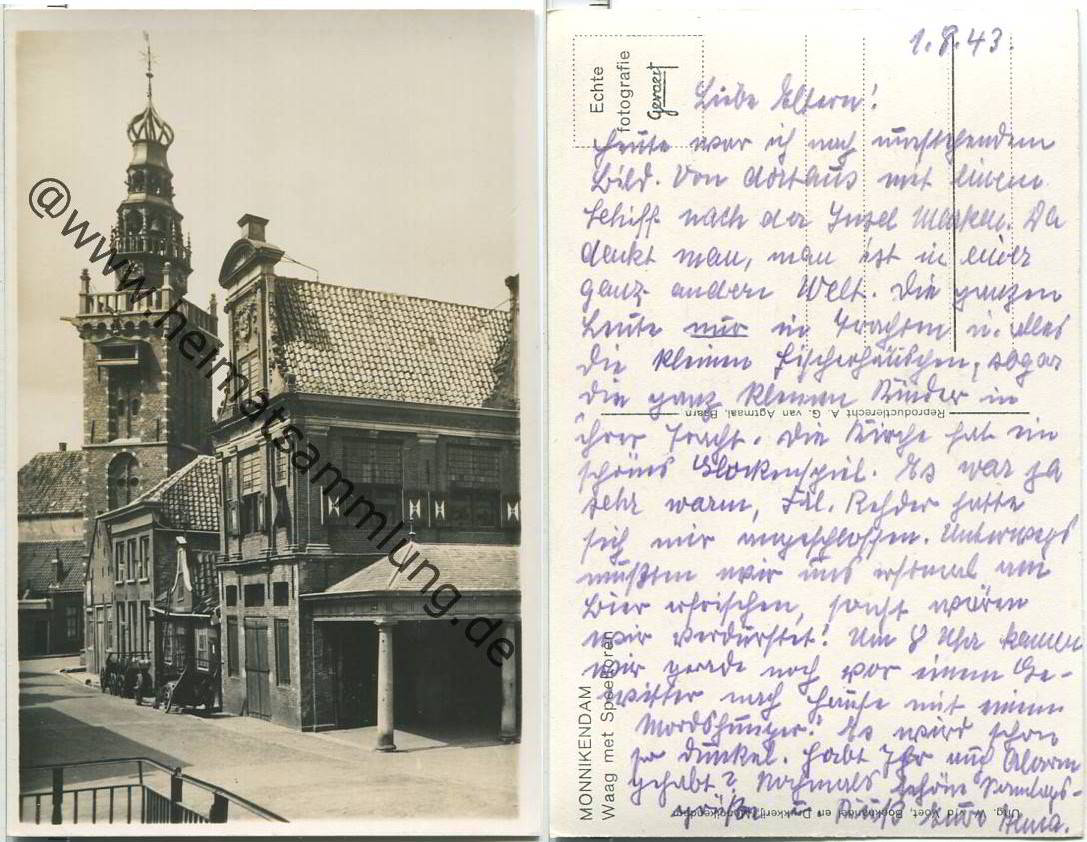 @www.heimatsammlung.de
Echte
fotografie
Gevaert
1.8.43.
Liebe Eltern!
Heute war ich nach umstehendem
Bild. Von dortaus mit einem
Schiff nach der Insel Marken. Da
denkt man, man ist in einer
ganz andern Welt. Die ganzen
Leute nur in Trachten u. alles
die kleinen Fischerhäuschen, sogar
die ganz kleinen Kinder in
ihrer Tracht. Die Kirche hat ein
schönes Glockenspiel. Es war ja
sehr warm, Frl. Rehder hatte
sich mir angeschlossen. Unterwegs
mußten wir uns erstmal am
Bier erfrischen, sonst wären
wir verdurstet! Um 8 Uhr kamen
wir gerade noch vor einem Ge-
witter nach Hause mit einem
Mordshunger! Es wird schon
so dunkel. Habt Ihr auch Alarm
gehabt? Nochmals schöne Sonntags-
grüße u. Kuß Eure
Reproductierecht A. G. van Agtmaal, Baarn
MONNIKENDAM
Waag met Speeltoren
Uitg. W. v/d Voet, Boekhandel en Drukkerij, Monnikendam